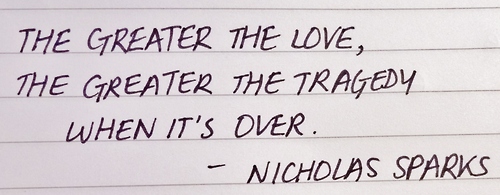 THE GREATER THE LOVE,
THE GREATER THE TRAGEDY
WHEN IT'S OVER.
- NICHOLAS SPARKS